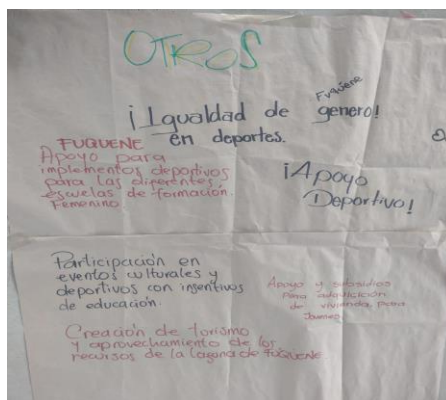 OTROS
Fuquene
¡Igualdad de genero!
en deportes.
FUQUENE
Apoyo para
implementos deportivos
para las diferentes
escuelas de formación.
Femenino
¡Apoyo
Deportivo!
Participación en
eventos culturales y
deportivos con insentivos
de educación.
Apoyo y subsidios
para adquisición
de vivienda para
Jovenes
Creación de torismo
y aprovechamiento de los
recursos de la laguna de FUQUENE